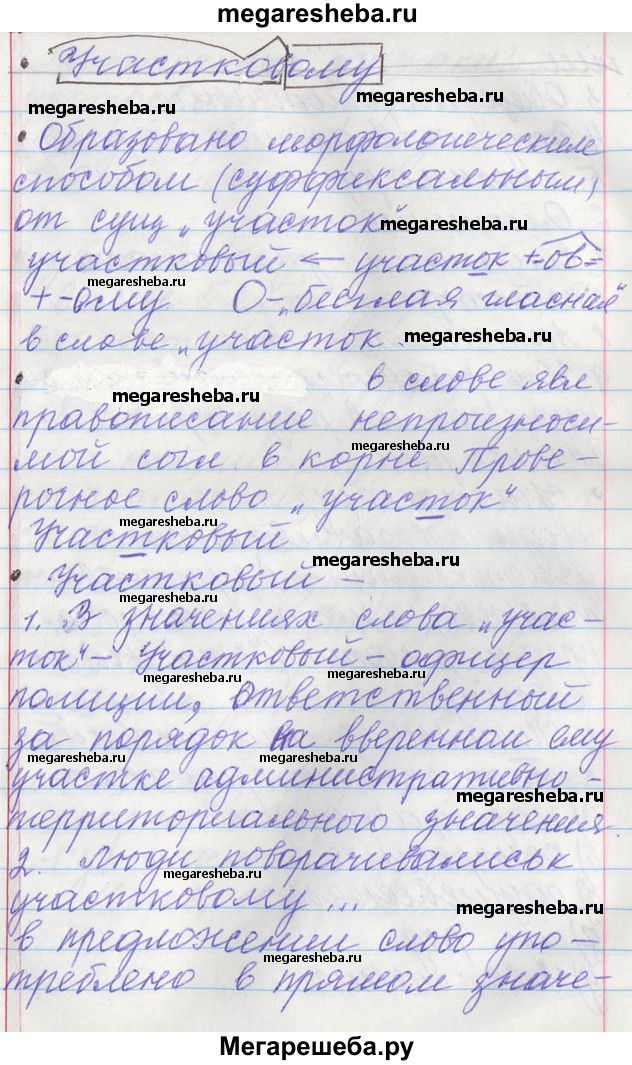 megaresheba.ru
• Участковому
megaresheba.ru
megaresheba.ru
• Образовано морфологическим
способом (суффиксальным)
от сущ „участок"
megaresheba.ru
участковый ← участок + -ов-
megaresheba.ru
+ -ому О - „беглая гласная"
в слове „участок
megaresheba.ru
• в слове явл
megaresheba.ru
правописание непроизноси-
megaresheba.ru
мой согл в корне Прове-
рочное слово „участок"
megaresheba.ru
Участковый
megaresheba.ru
• Участковый –
megaresheba.ru
1. 3 значениях слова „учас-
ток" – Участковый – офицер
megaresheba.ru
полиции, ответственный
за порядок на вверенном ему
megaresheba.ru megaresheba.ru
участке административно-
megaresheba.ru
территориального значения
2. Люди поворачивались к
megaresheba.ru
участковому ...
megaresheba.ru
в предложении слово упо-
megaresheba.ru
треблено в прямом значе-
Мегарешеба.ру